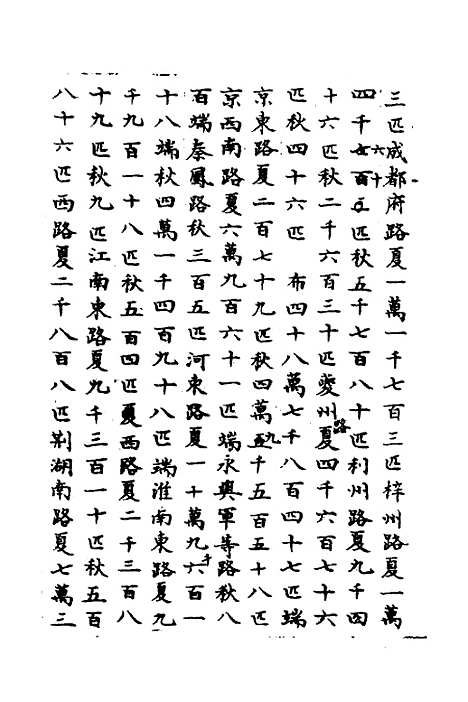 三匹成都府路夏一萬一千七百三匹梓州路夏一萬
四千六十匹秋五千七百八十匹利州路夏九千四
十六匹秋二千六百三十匹夔州路夏四千六百七十六
匹秋四十六匹 布四十八萬七千八百四十七匹端
京東路夏二百七十九匹秋四萬九千五百五十八匹
京西南路夏六萬九百六十一匹端永興軍等路秋八
百端秦鳳路秋三百五匹河東路夏一十萬九千六百一
十八端秋四萬一千四百九十八匹端淮南東路夏九
千九百一十八匹秋五百四匹西路夏二千三百八
十九匹秋九匹江南東路夏九千三百一十匹秋五百
八十六匹西路夏二千八百八匹荆湖南路夏七萬三